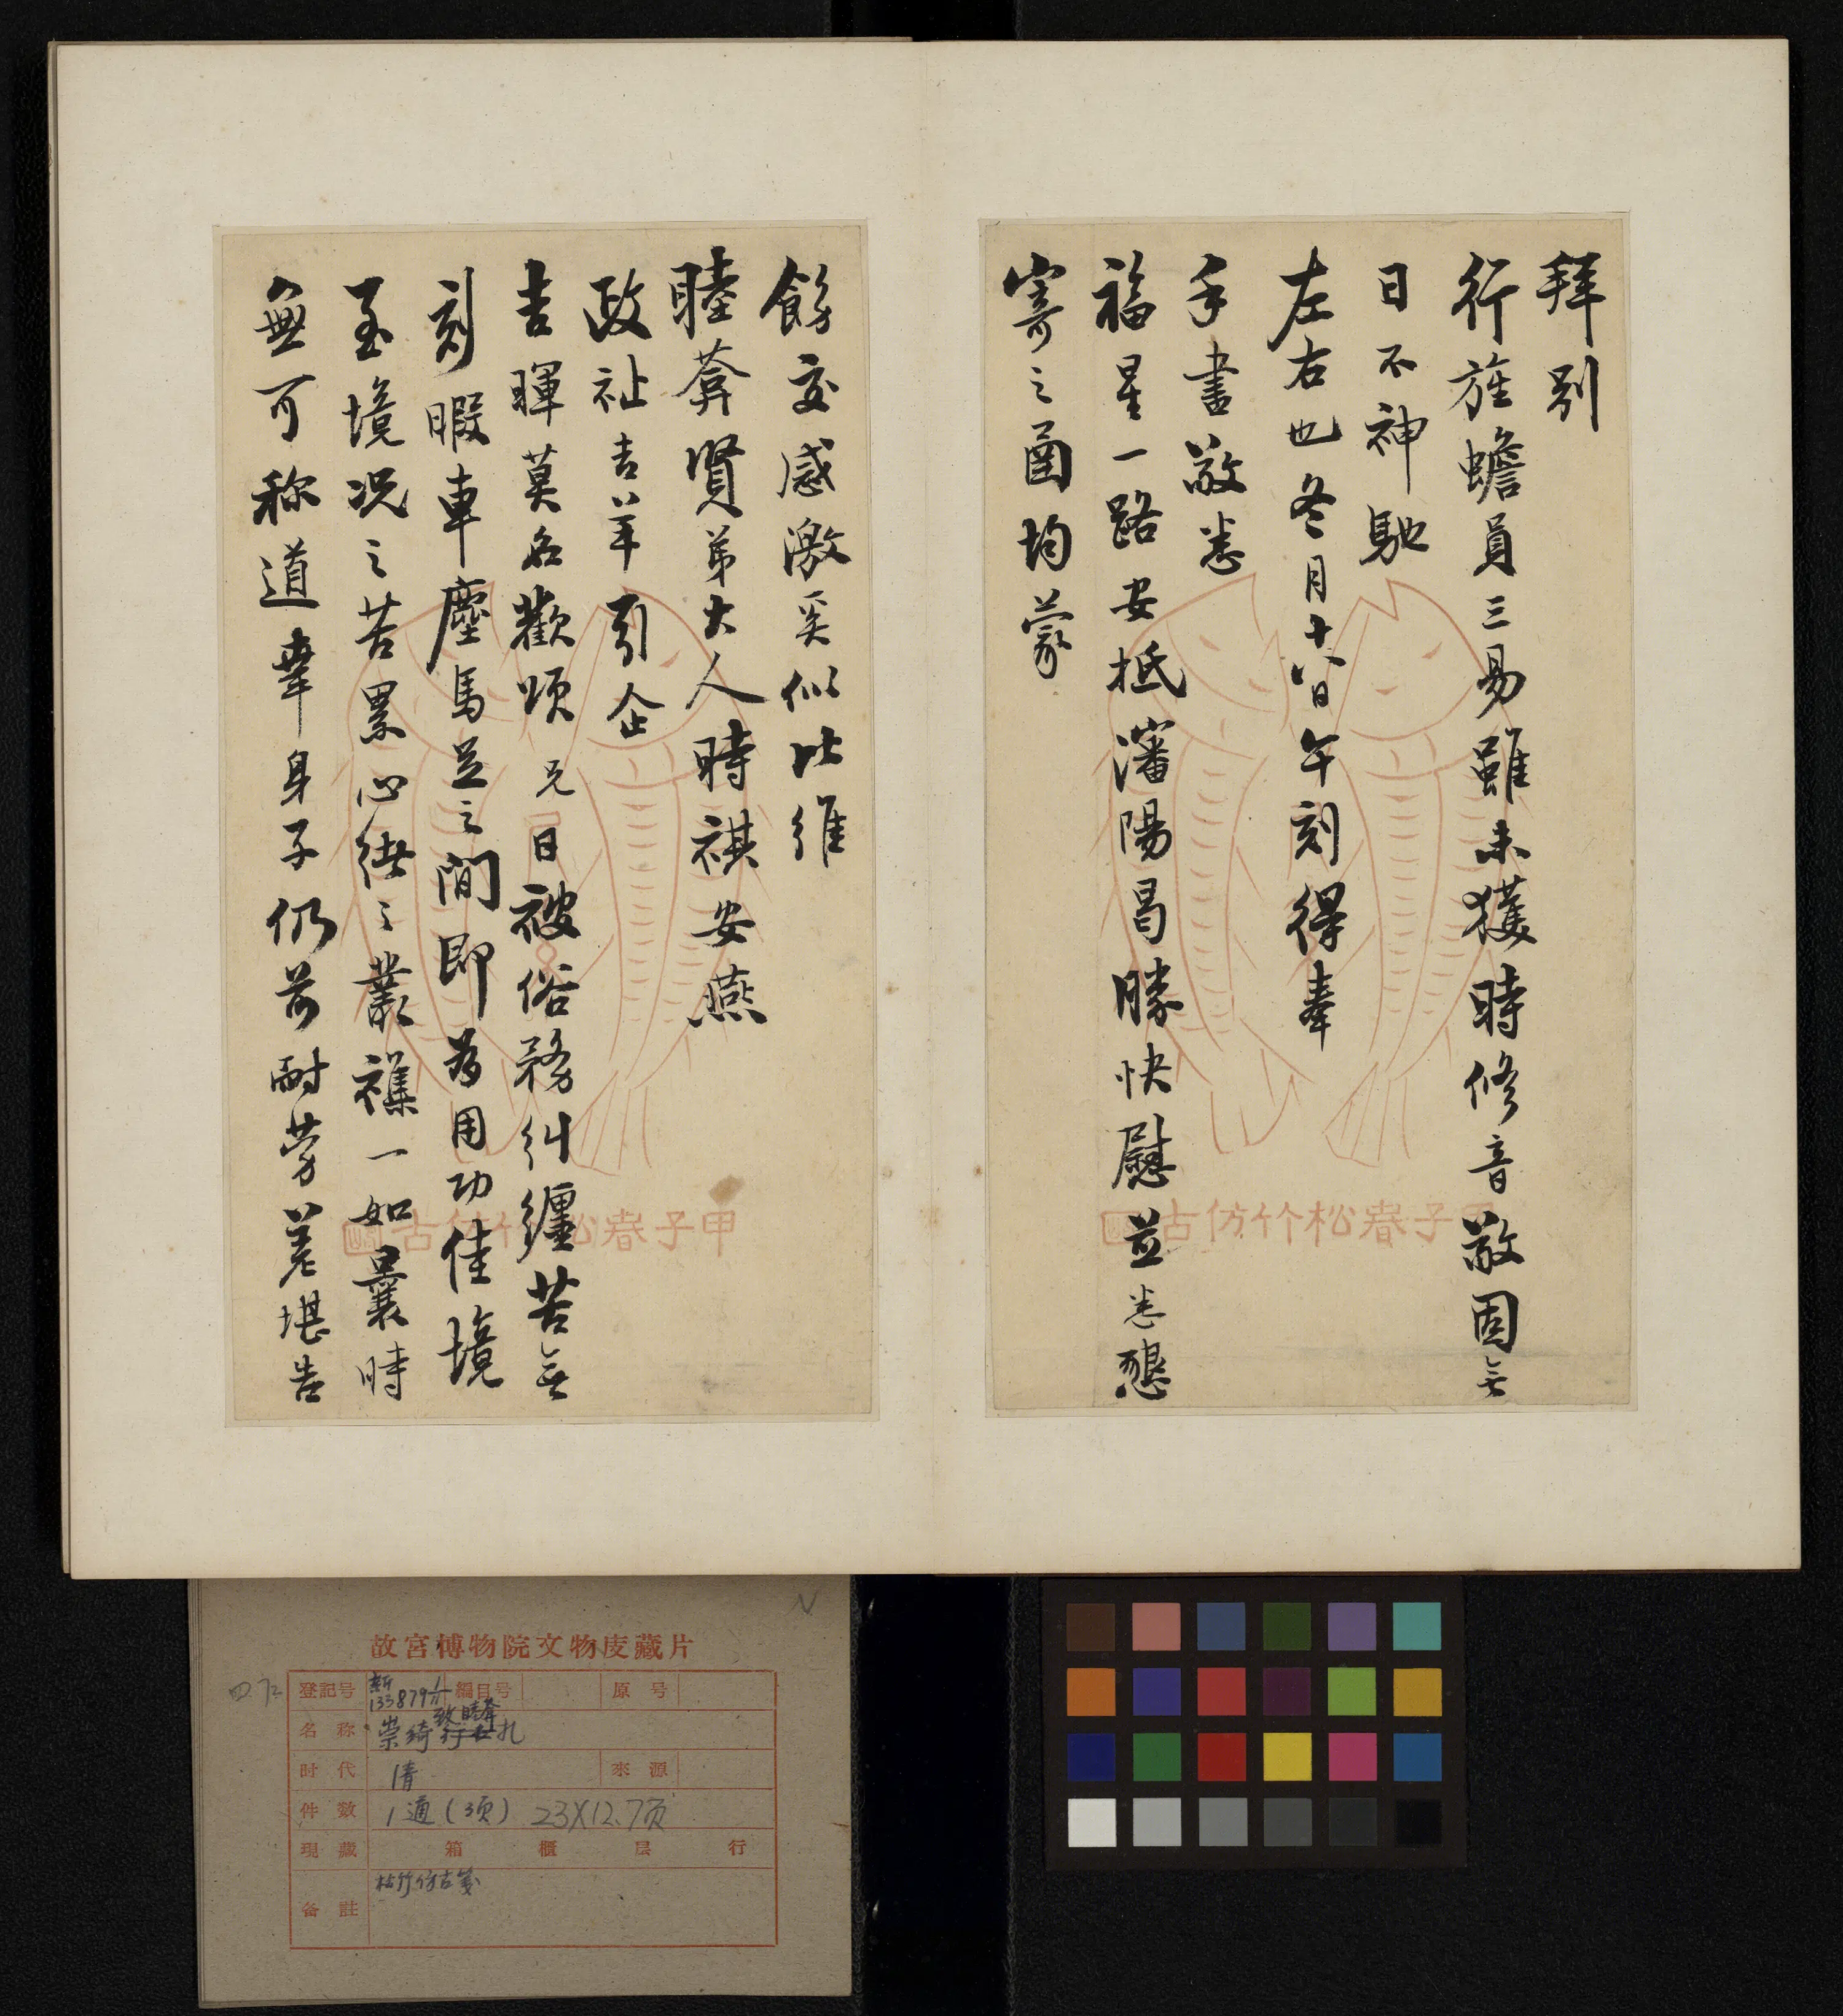 拜别
行旌蟾員三易雖未獲時修音敬固無
日不神馳
左右也冬月十八日午刻得奉
手書敬悉
福星一路安抵瀋陽曷勝快慰並悉懇
寄之函均蒙
餙交感激奚似比維
睦葊賢弟大人時祺安燕
政祉吉羊引企
吉暉莫名歡頌兄日被俗務糾纏苦無
刻暇車塵馬足之間即為用功佳境
至境况之苦累心緒之叢襍一如曩時
無可称道幸身子仍前耐劳差堪告
甲子春松竹仿古
甲子春松竹仿古
故宫博物院文物庋藏片
四.72
登記号 新133879 編目号 原号
名称 崇绮致睦葊札
时代 清 來源
件数 1通(3页) 23X12.7页
現藏 箱 櫃 层 行
备註 松竹仿古笺